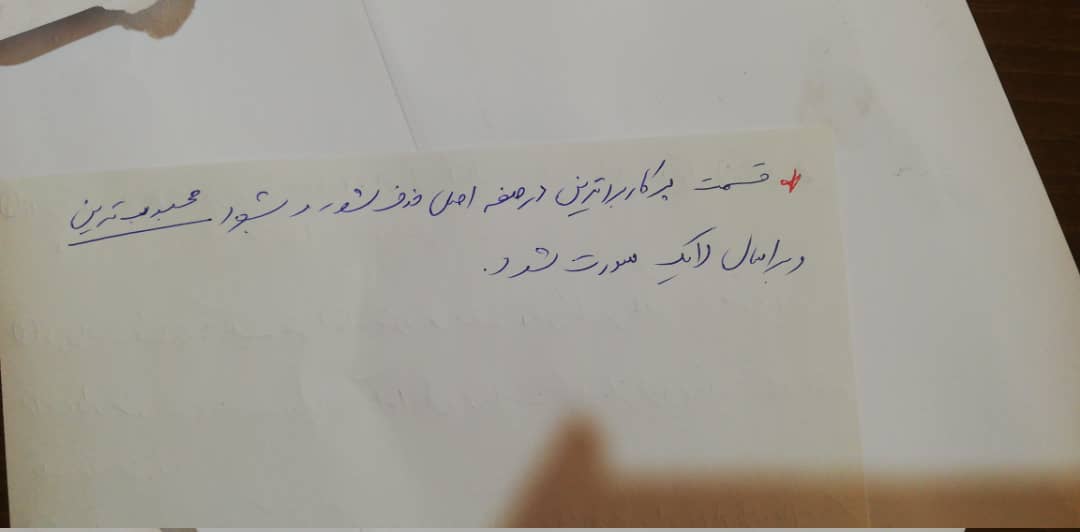 * قسمت پر کاربرد ترین در صفحه اصلی حذف شود و بشود محبوب ترین
و بر اساس لایک صورت شود.